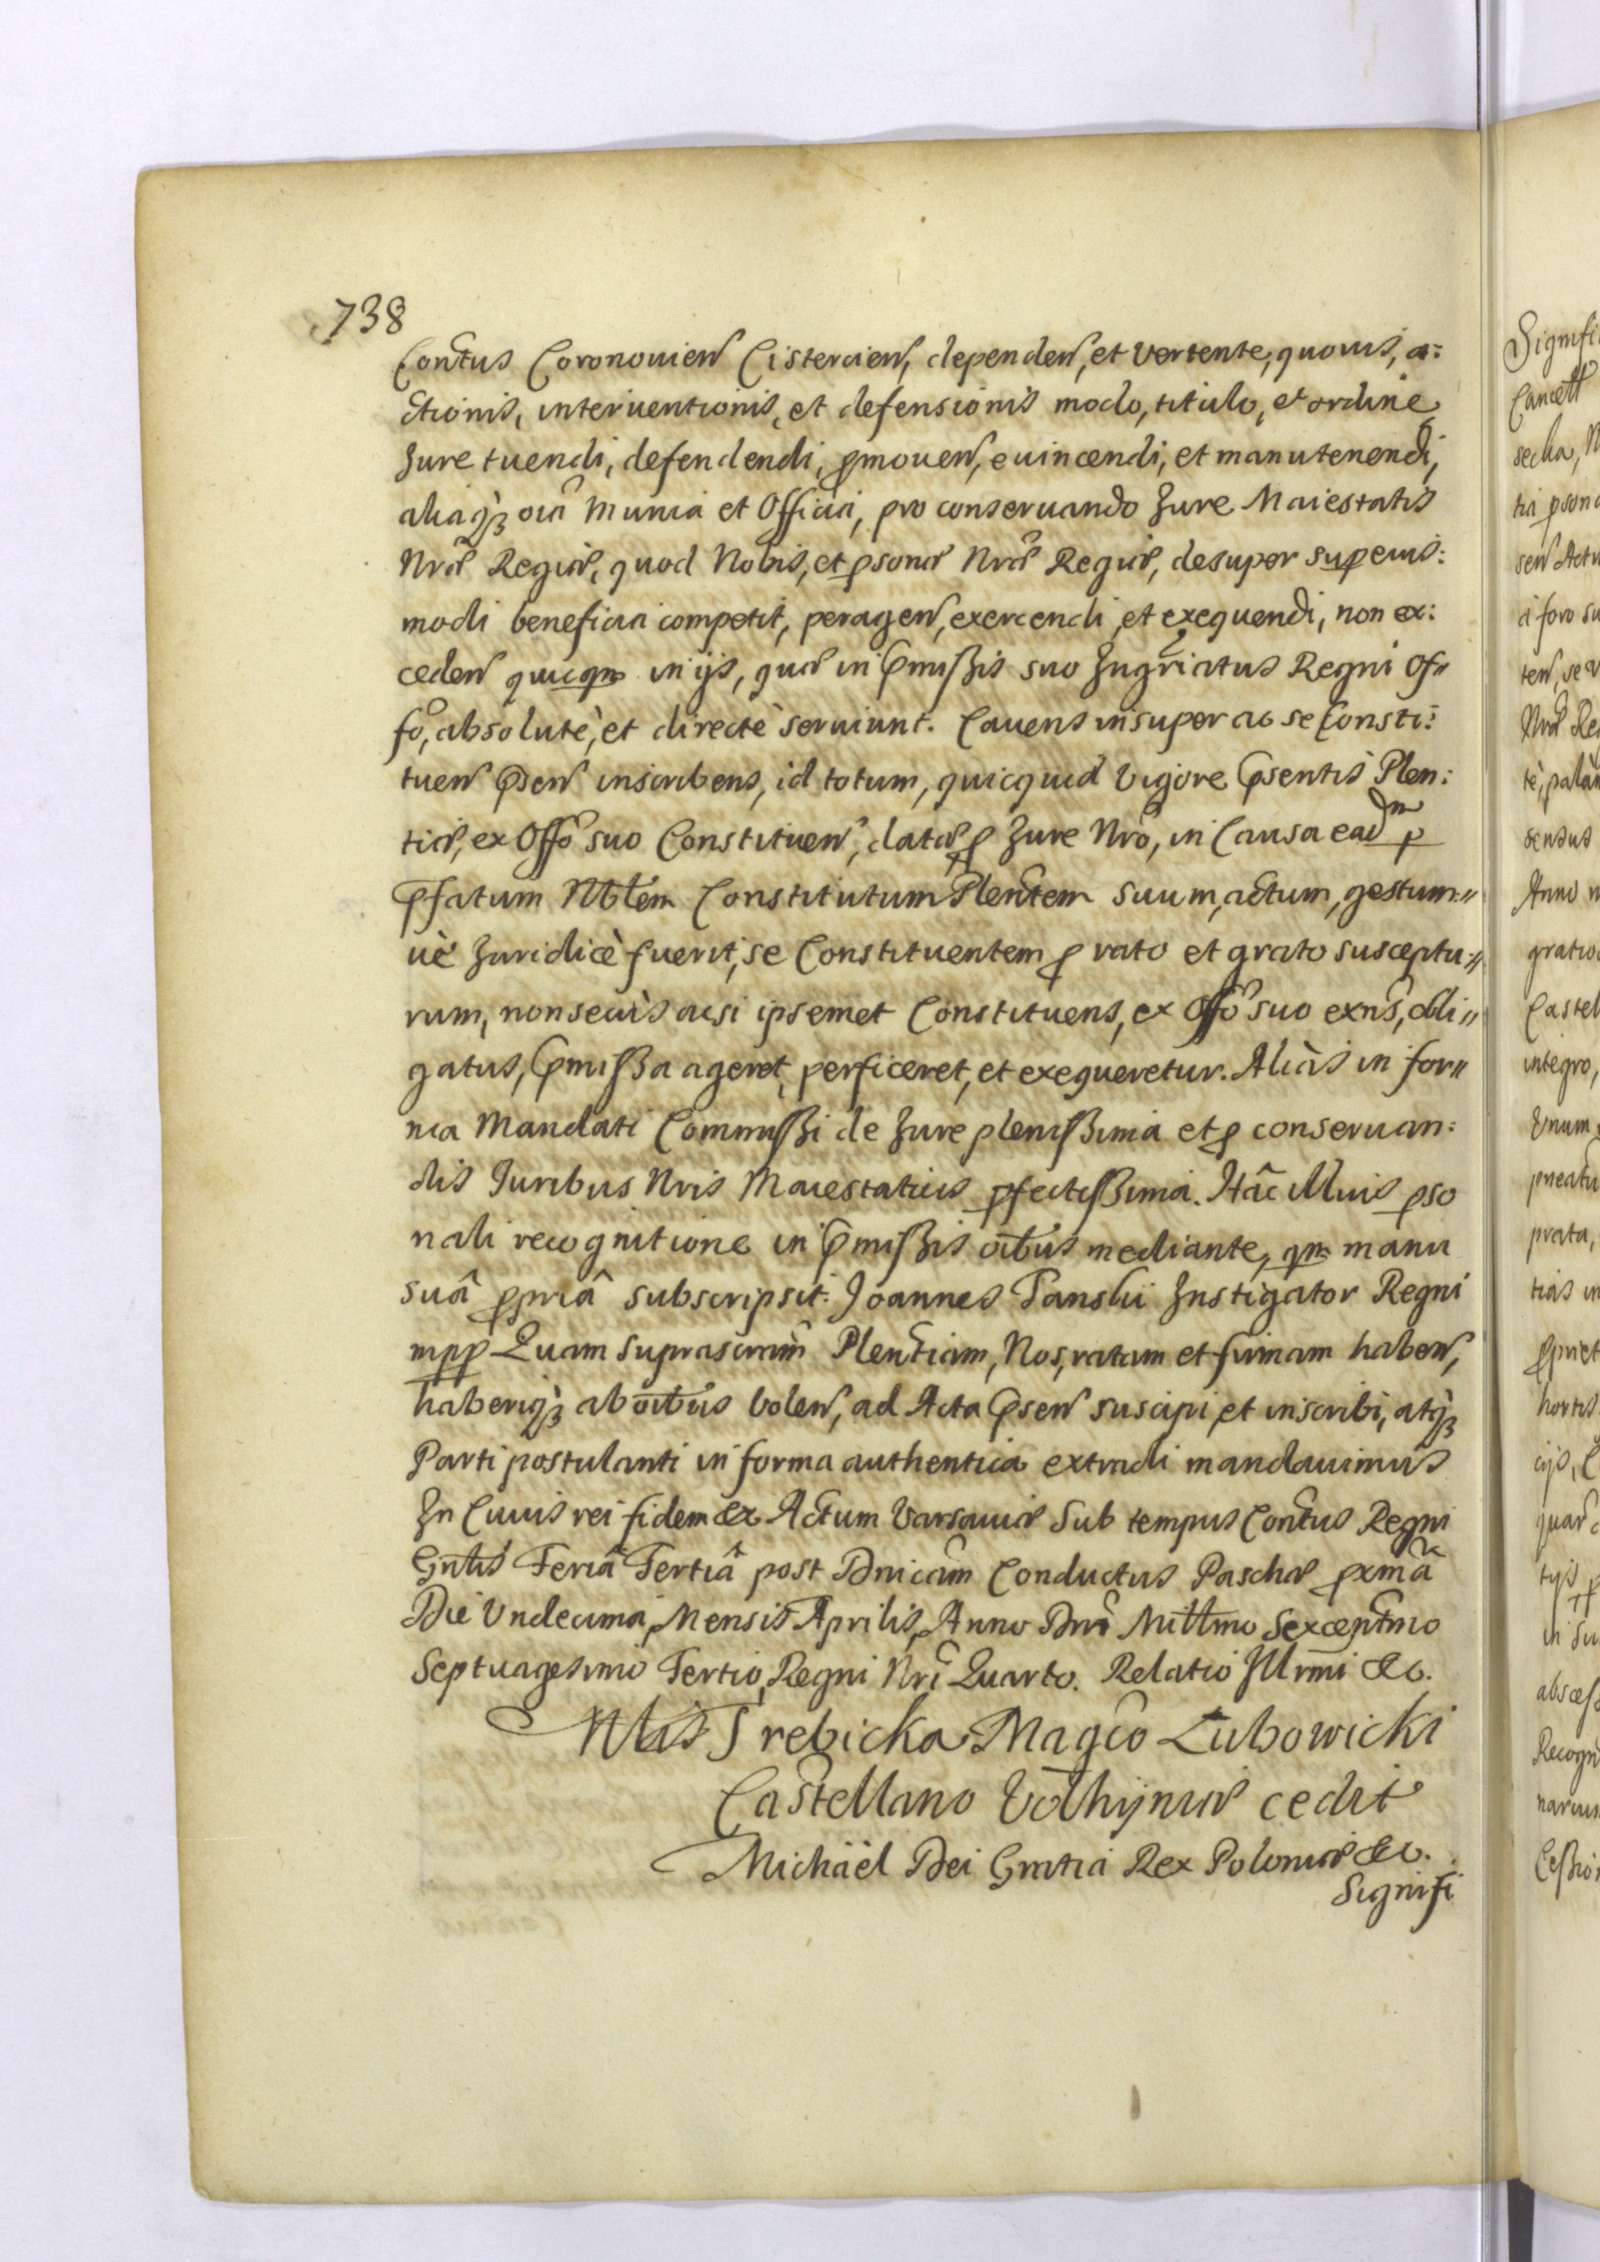 738
Conventus Coronovien Cistercien, dependen, et vertente, quovis, a:
ctionis, interventionis, et defensionis modo, titulo, et ordine
Jure tuendi, defendendi, pmoven, evincendi, et manutenendi,
aliaqꝫ oia Munia et Officia, pro conservando Jure Maiestatis
Nræ Regiæ, quod Nobis, et psonæ Nræ Regiæ, desuper sup eius:
modi beneficia competit, peragen, exercendi, et exequendi, non ex:
ceden quicqm in ijs, quæ in pmißis suo Ingriatus Regni Of„
fo, absolutè, et directè serviunt. Cavens insuper ac se Consti:
tuen psen inscribens, id totum, quicquid vigore psentis Plen:
tiæ, ex Offo suo Constituen, datæ p Jure Nro, in Causa eadm p
pfatum Nblem Constitutum Plentem suum, actum, gestum„
uè Juridicè fuerit, se Constituentem p rato et grato susceptu„
rum, non secùs acsi ipsemet Constituens, ex Offo suo exns, obli„
gatus, pmißa ageret, perficeret, et exequeretur. Aliàs in for„
ma Mandati Commißi de Jure plenißima et p conservan:
dis Juribus Nris Maiestaticis pfectißima. Hâc illius pso
nali recognitione in pmißis oibus mediante, qm manu
suâ ppriâ subscripsit. Joannes Tanskii Instigator Regni
mpp Quam suprascram Plentiam, Nos, ratam et firmam haben,
haberiqꝫ ab oibus volen, ad Acta psen suscipi, et inscribi, atqꝫ
Parti postulanti in forma authentica extradi mandavimus
In Cuius rei fidem &c Actum Varsaviæ Sub tempus Contus Regni
Gnlis Feriâ Tertiâ post Dnicam Conductus Paschæ pximâ
Die Undecima, Mensis Aprilis, Anno Dni Millmo Sexcentmo
Septuagesimo Tertio, Regni Nri Quarto. Relatio Illrmi &c.
Nblis Trebicka Magco Lubowicki
Castellano Volhyniæ cedit
Michaël Dei Gratia Rex Poloniæ &c.
Signifi